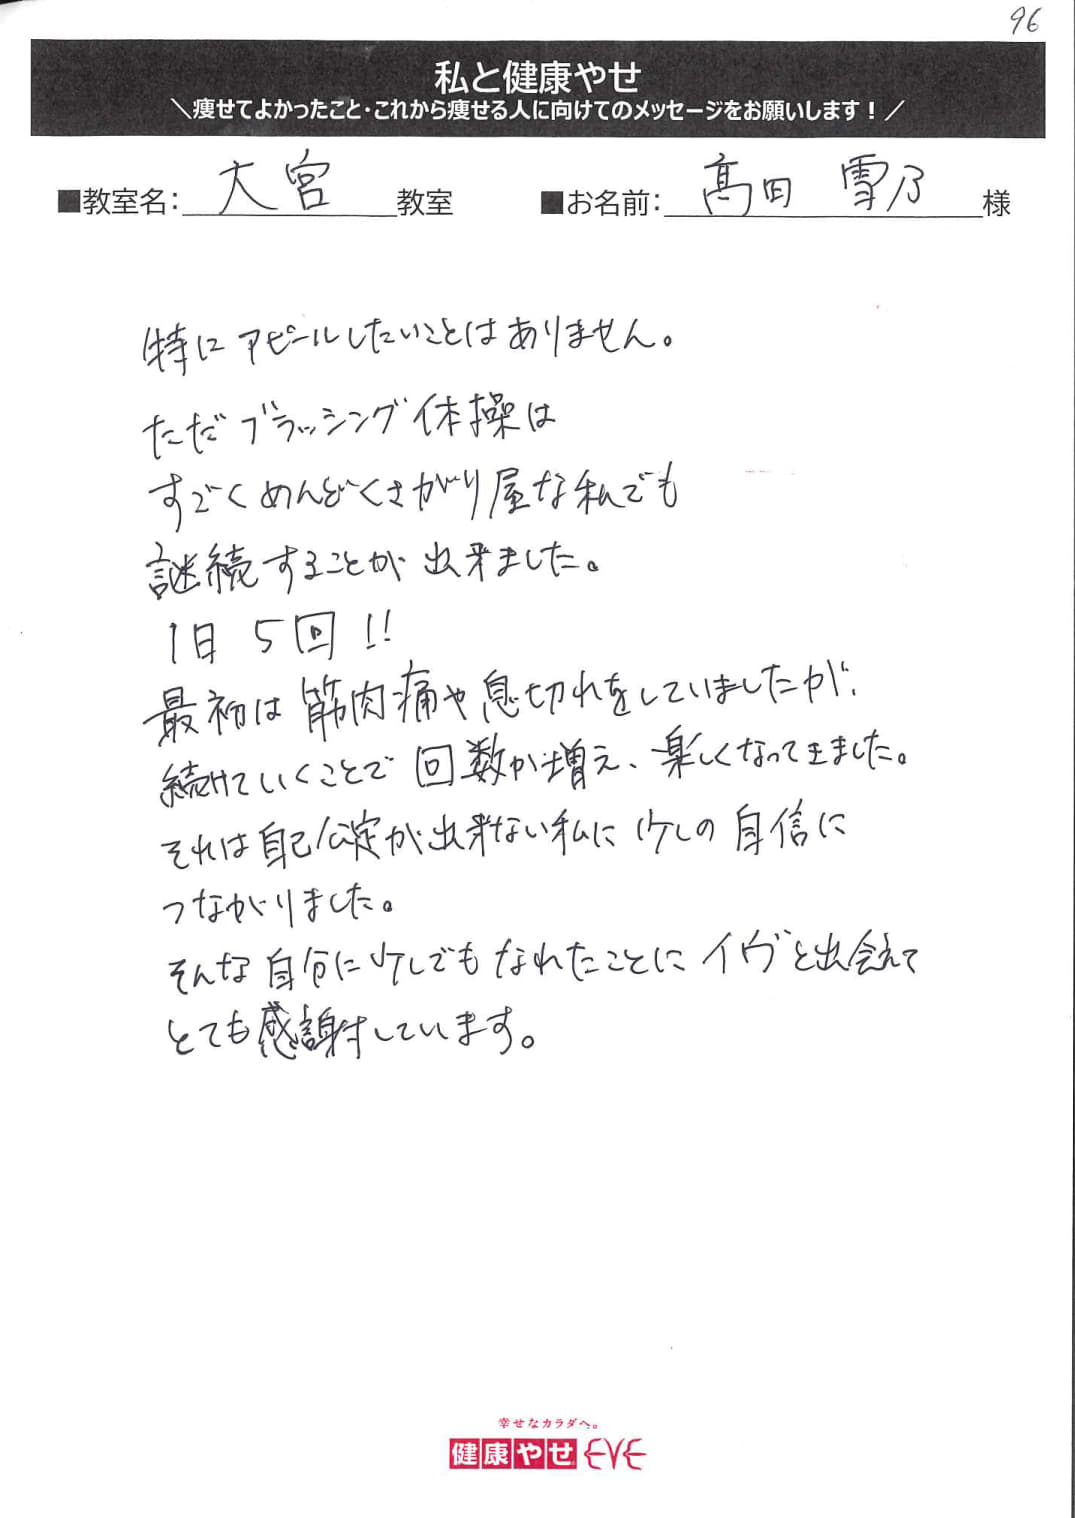 96
私と健康やせ
＼痩せてよかったこと・これから痩せる人に向けてのメッセージをお願いします！／
■教室名：大宮教室 ■お名前：髙田 雪乃様
特にアピールしたいことはありません。
ただブラッシング体操は
すごくめんどくさがり屋な私でも
継続することが出来ました。
1日 5回!!
最初は筋肉痛や息切れをしていましたが、
続けていくことで回数が増え、楽しくなってきました。
それは自己肯定が出来ない私に少しの自信に
つながりました。
そんな自分に少しでもなれたことにイヴと出会えて
とても感謝しています。
幸せなカラダへ。
健康やせEVE